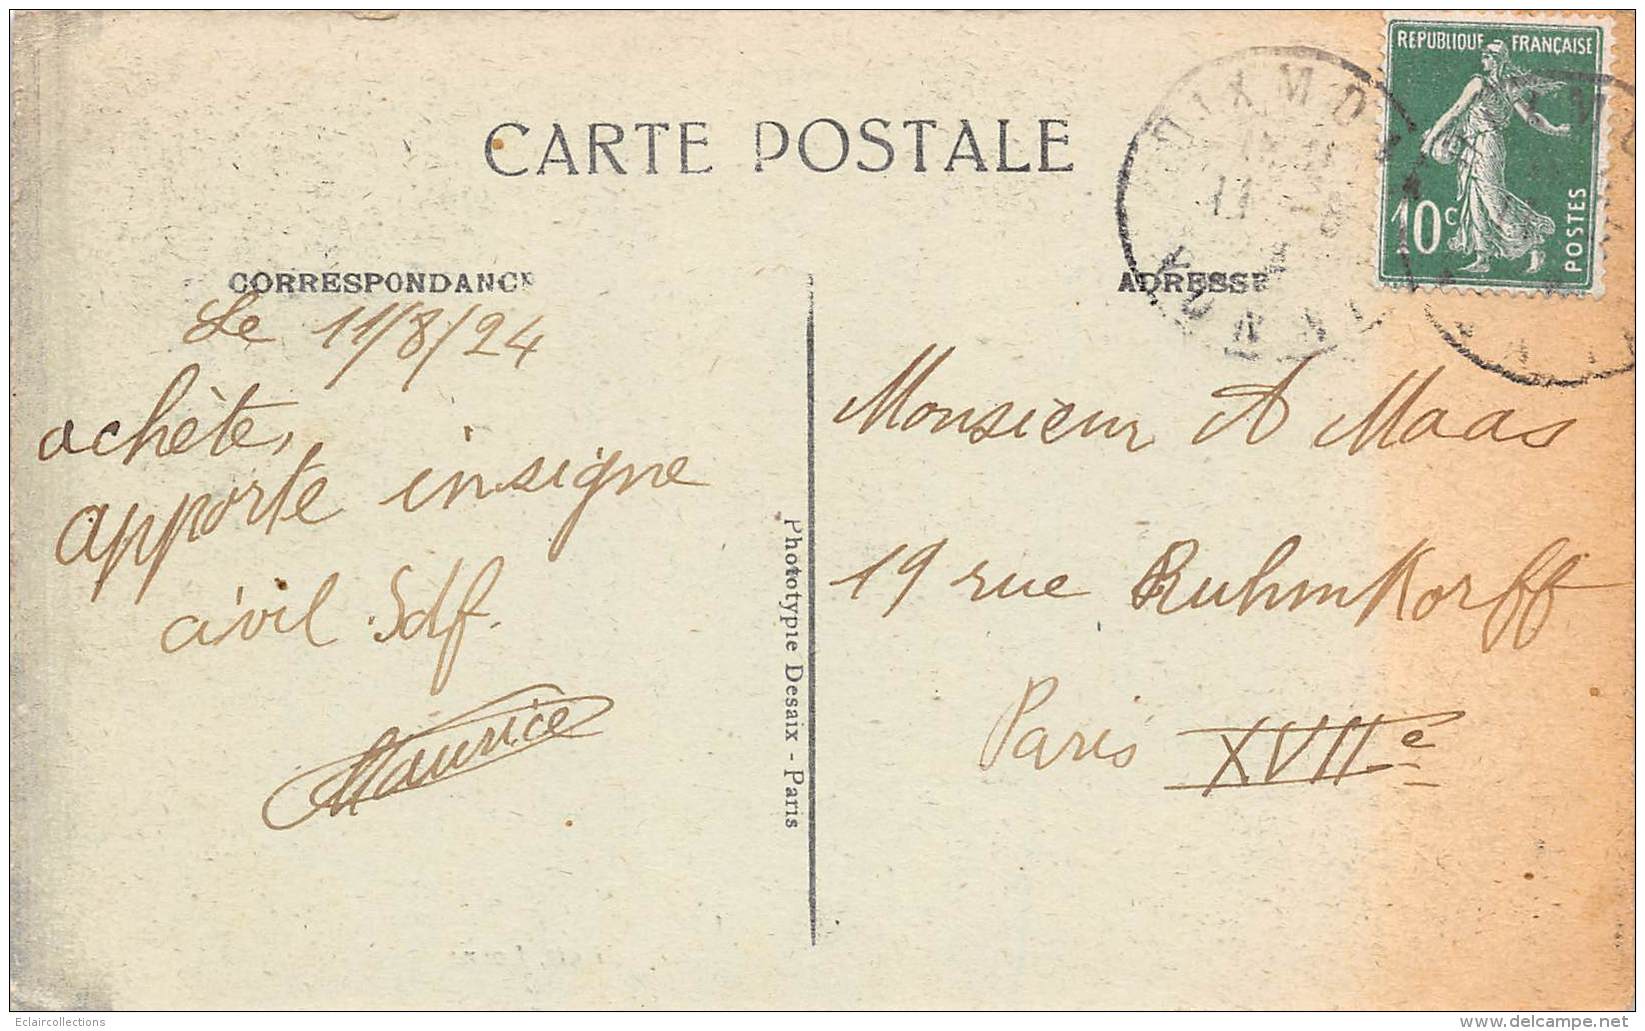 REPUBLIQUE FRANÇAISE
10c
POSTES
CARTE POSTALE
CORRESPONDANCE
ADRESSE
Le 11/8/24
achète,
apporte insigne
civil Sdf.
Maurice
Phototypie Desaix - Paris
Monsieur A Maas
19 rue Ruhmkorff
Paris XVIIe
Eclaircollections
delcampe.net